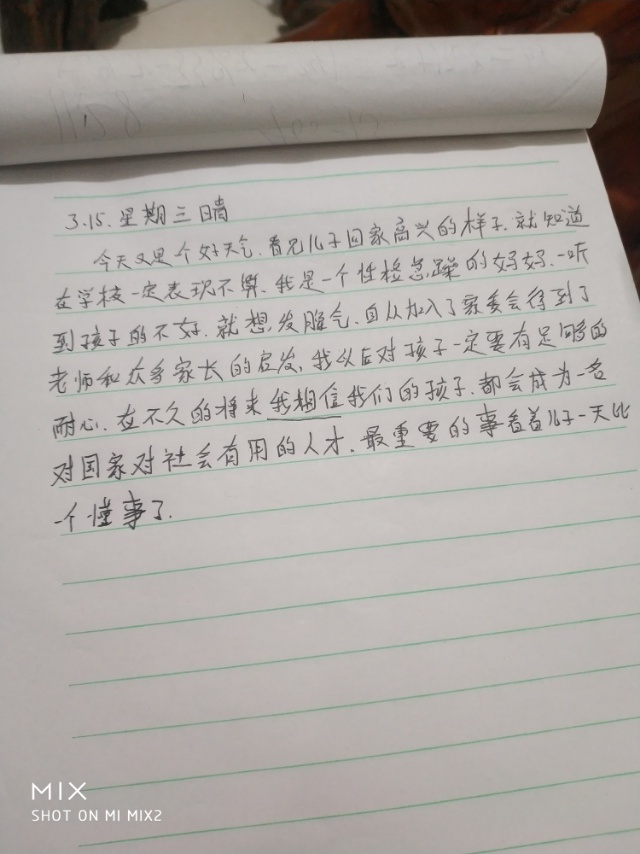 3.15.星期三晴
今天又是个好天气.看见儿子回家高兴的样子.就知道
在学校一定表现不错.我是一个性格急躁的妈妈.一听
到孩子的不好.就想发脾气.自从加入了家委会得到了
老师和众多家长的启发,我以后对孩子一定要有足够的
耐心.在不久的将来我相信我们的孩子.都会成为一名
对国家对社会有用的人才.最重要的事看着儿子一天比
一个懂事了.
MIX
SHOT ON MI MIX2